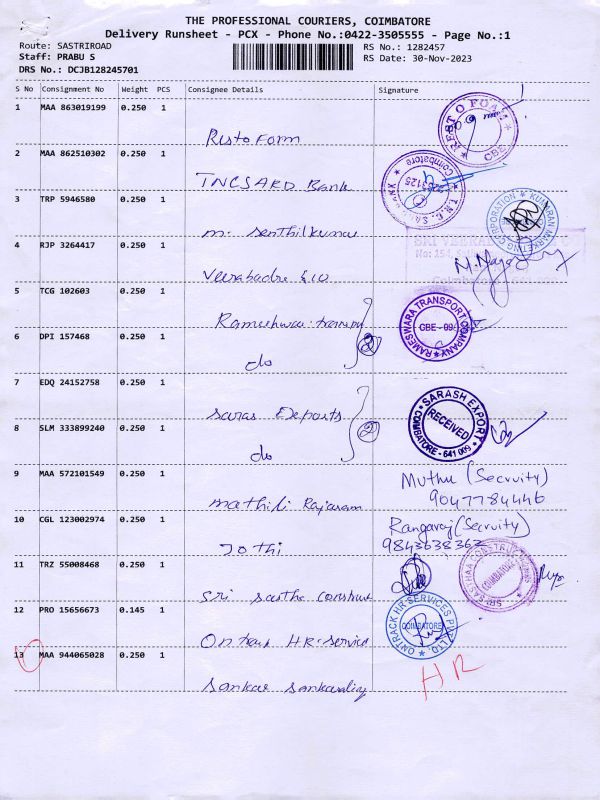 THE PROFESSIONAL COURIERS, COIMBATORE
Delivery Runsheet - PCX - Phone No.:0422-3505555 - Page No.:1
Route: SASTRIROAD
RS No.: 1282457
Staff: PRABU S
RS Date: 30-Nov-2023
DRS No.: DCJB128245701
S No Consignment No Weight PCS Consignee Details Signature
1 MAA 863019199 0.250 1
Risto Form
REST O FOAM CBE
2 MAA 862510302 0.250 1
TNCSARD Bank
Coimbatore
3 TRP 5946580 0.250 1
m. Senthilkumar
KUMARAN MARKETING CORPORATION
4 RJP 3264417 0.250 1
Veerabadra & co
SRI VEERA
No: 154,
5 TCG 102603 0.250 1
Rameshwar transpo
RAMESWARA TRANSPORT COMPANY
CBE - 09
6 DPI 157468 0.250 1
do
2
7 EDQ 24152758 0.250 1
Saras Exports
SARASH EXPORT
RECEIVED
COIMBATORE - 641 009
8 SLM 333899240 0.250 1
do
2
9 MAA 572101549 0.250 1
mathili Rajaram
Muthu (Secruity)
9047784446
10 CGL 123002974 0.250 1
Jothi
Rangaraj (Secruity)
9843638363
11 TRZ 55008468 0.250 1
Sri Sastha construc
SRI SASTHAA CONSTRUCTIONS
COIMBATORE
12 PRO 15656673 0.145 1
On track HR. Service
ONTRACK HR SERVICES PVT LTD.
COIMBATORE
13 MAA 944065028 0.250 1
Sankar Sankaralig
HR